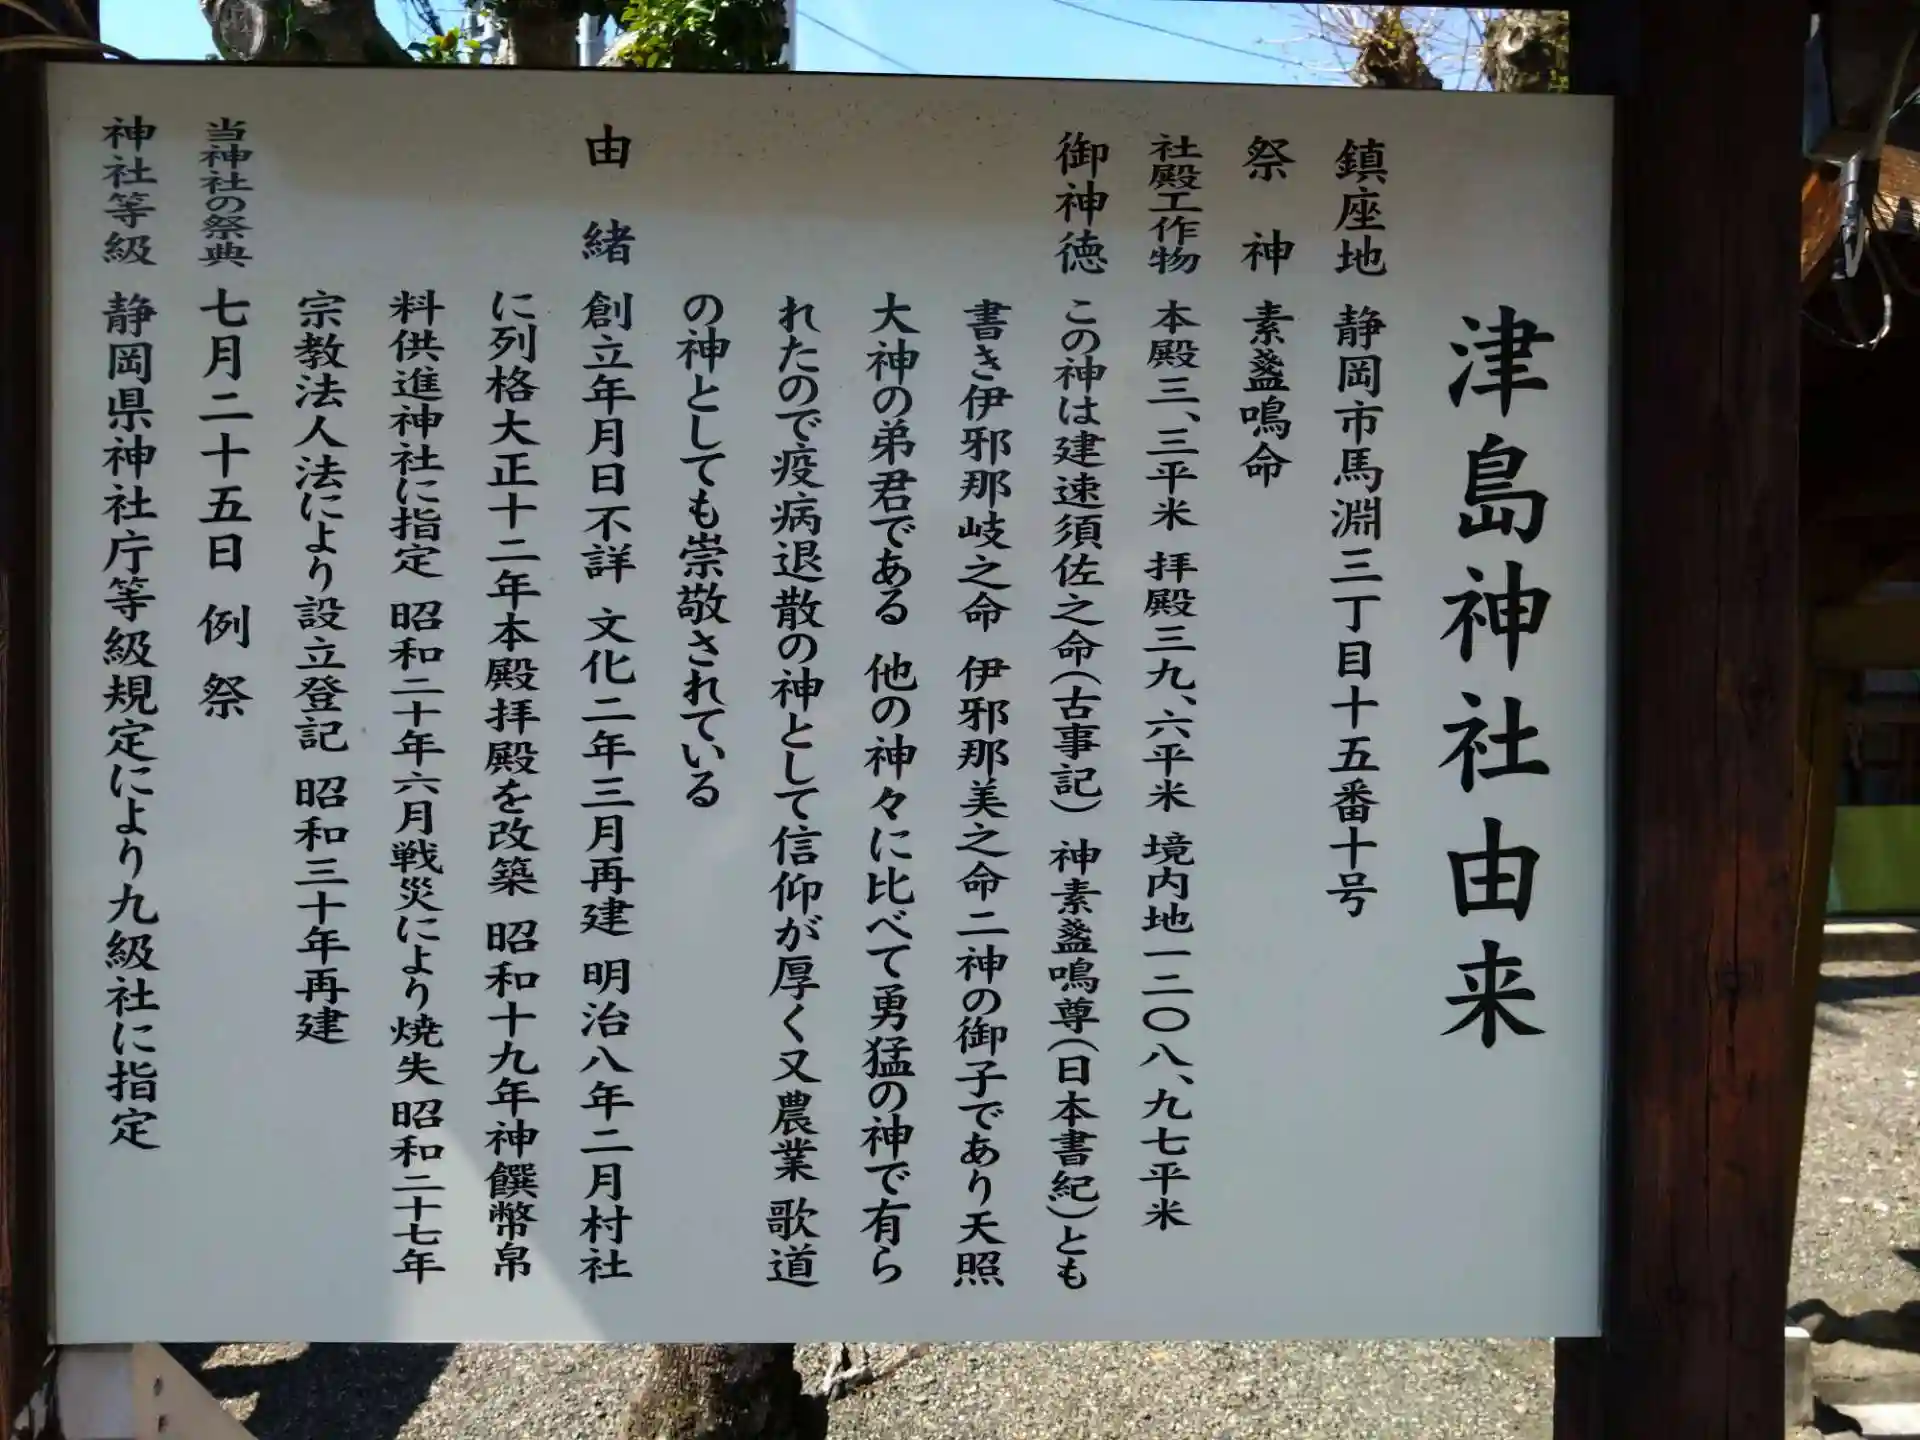 津島神社由来
鎮座地 静岡市馬淵三丁目十五番十号
祭神 素盞鳴命
社殿工作物 本殿三、三平米 拝殿三九、六平米 境内地一二〇八、九七平米
御神徳 この神は建速須佐之命(古事記) 神素盞鳴尊(日本書紀)とも
書き伊邪那岐之命 伊邪那美之命二神の御子であり天照
大神の弟君である 他の神々に比べて勇猛の神で有ら
れたので疫病退散の神として信仰が厚く又農業 歌道
の神としても崇敬されている
由緒 創立年月日不詳 文化二年三月再建 明治八年二月村社
に列格大正十二年本殿拝殿を改築 昭和十九年神饌幣帛
料供進神社に指定 昭和二十年六月戦災により焼失 昭和二十七年
宗教法人法により設立登記 昭和三十年再建
当神社の祭典 七月二十五日 例祭
神社等級 静岡県神社庁等級規定により九級社に指定